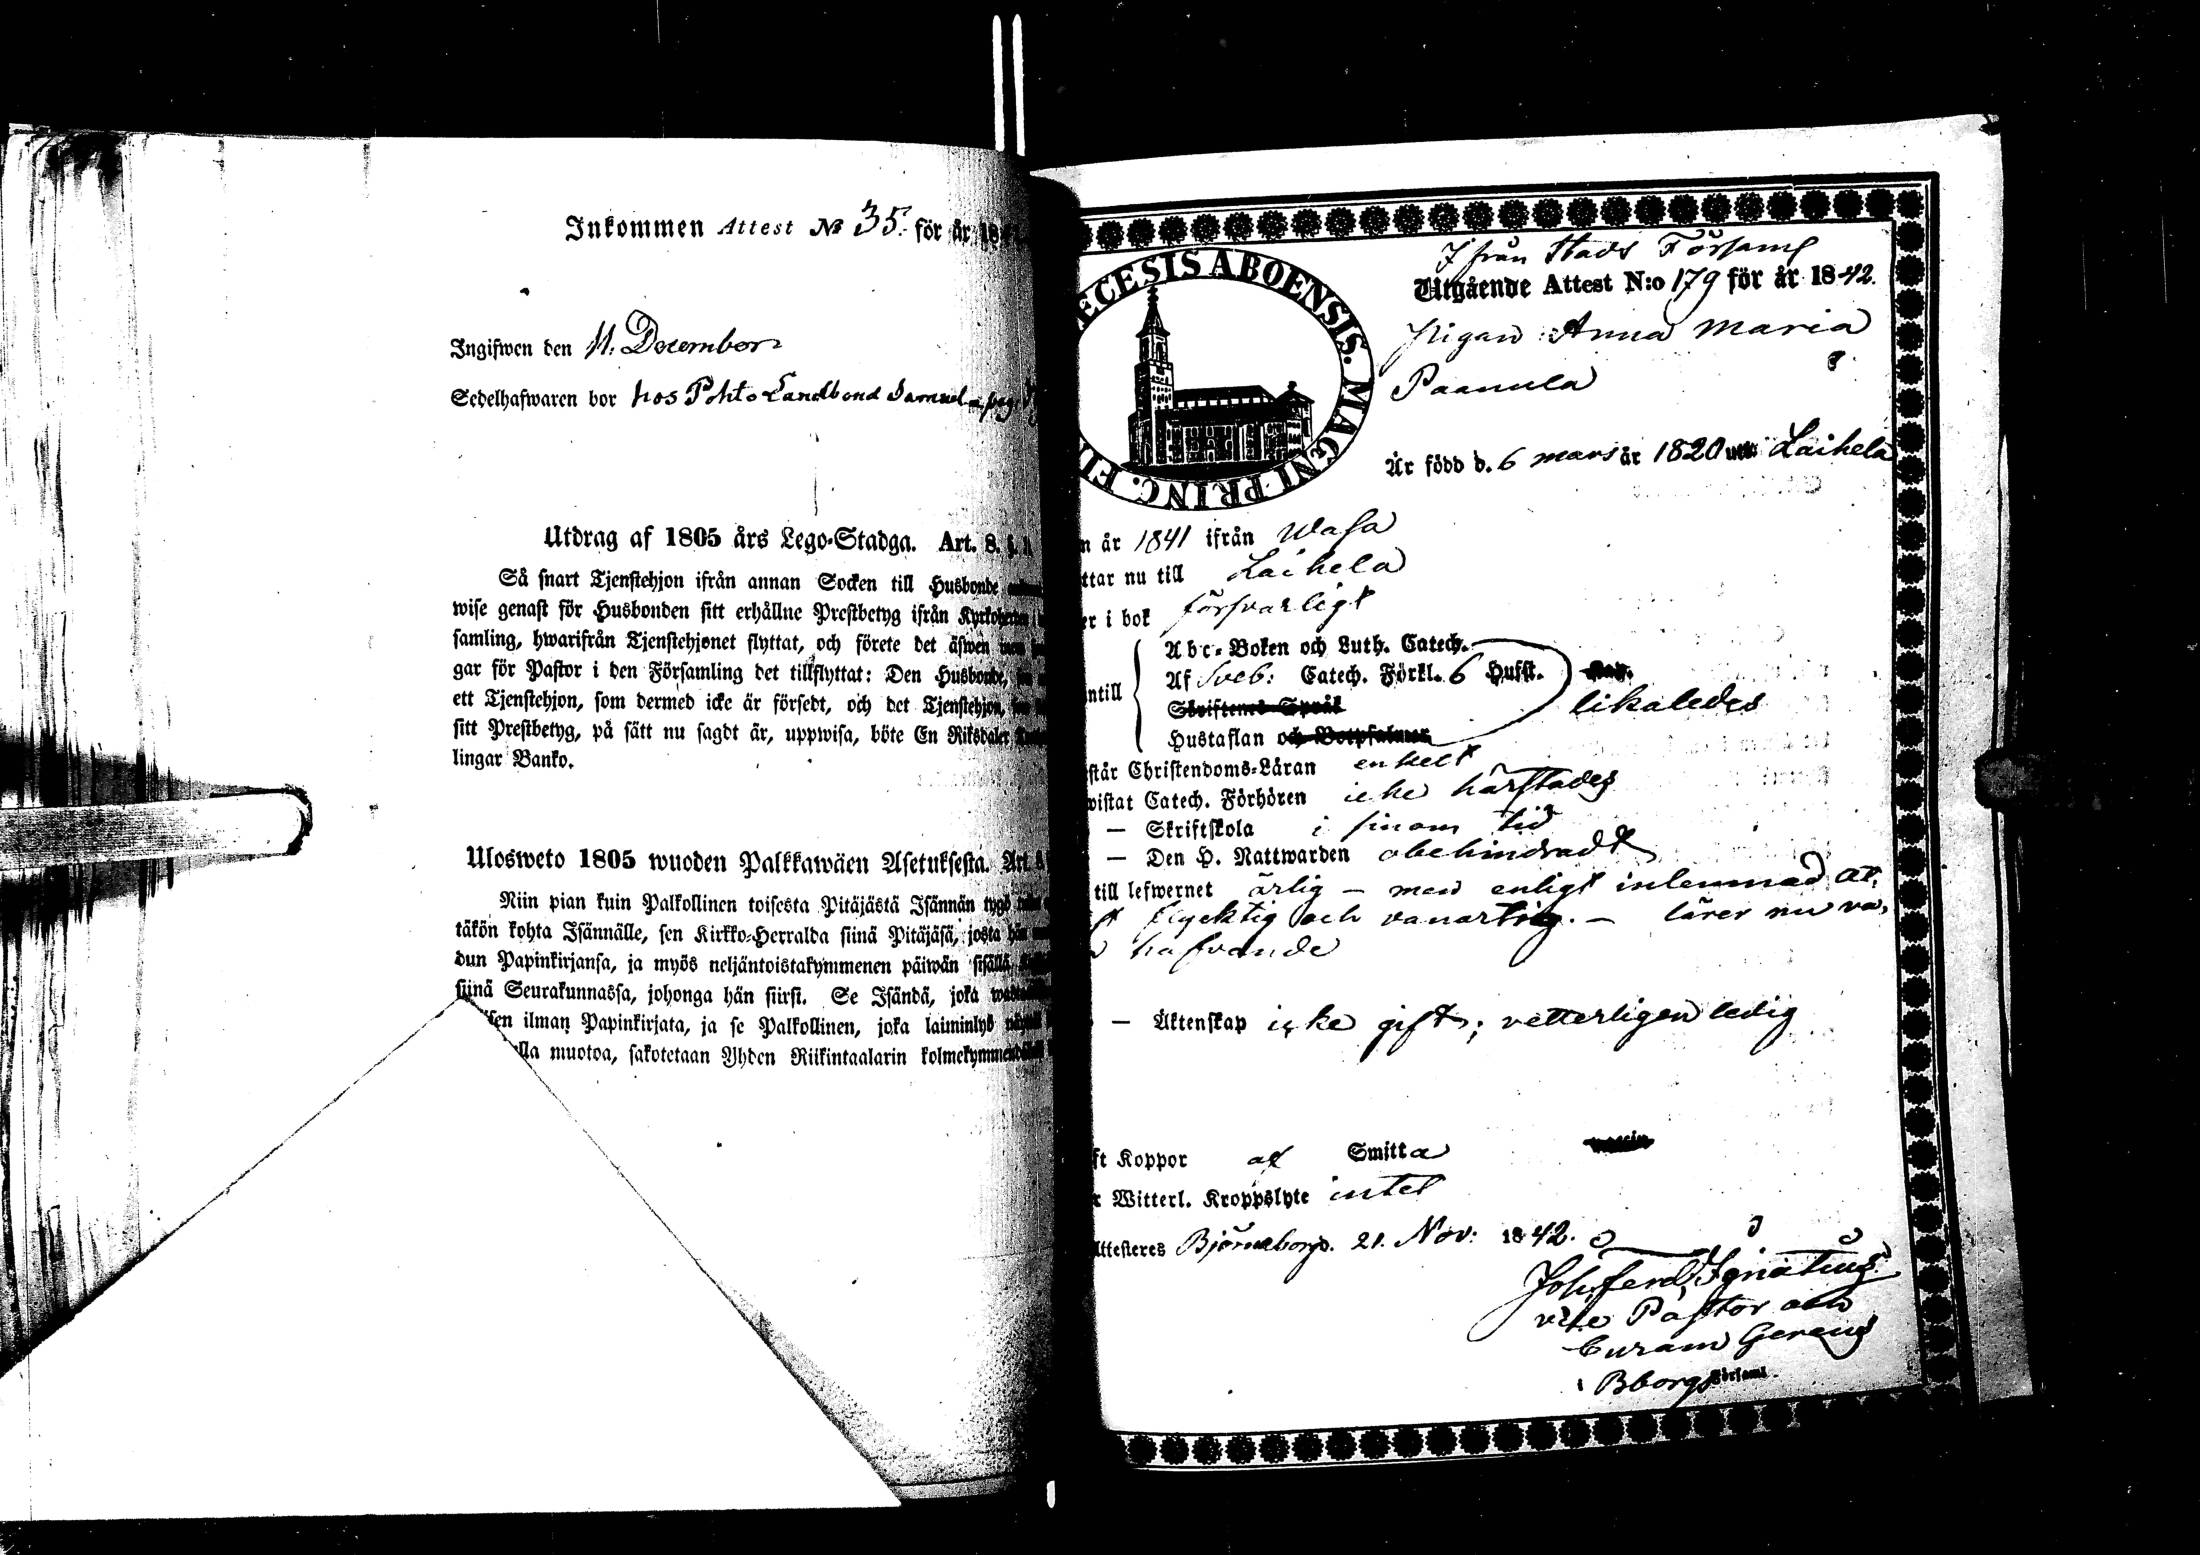 Inkommen Attest No 35. för år 18
Ingifwen den 11. December
Sedelhafwaren bor hos Pohto Landbond Samuel
Utdrag af 1805 års Lego-Stadga. Art. 8.
Så snart Tjenstehjon ifrån annan Socken till Husbonde
wise genast för Husbonden sitt erhållne Prestbetyg ifrån
samling, hwarifrån Tjenstehjonet flyttat, och förete det äfwen
gar för Pastor i den Församling det tillflyttat: Den Husbonde,
ett Tjenstehjon, som dermed icke är försedt, och det Tjenstehjon,
sitt Prestbetyg, på sätt nu sagdt är, uppwisa, böte En Riksdaler
lingar Banko.
Ulosweto 1805 wuoden Palkkawäen Asetuksesta. Art. 8.
Niin pian kuin Palkollinen toisesta Pitäjästä Isännän tygö
täkön kohta Isännälle, sen Kirkko-Herralda siinä Pitäjäsä, josta hän
dun Papinkirjansa, ja myös neljäntoistakymmenen päiwän sisällä
siinä Seurakunnassa, johonga hän siirsi. Se Isändä, joka
sen ilman Papinkirjata, ja se Palkollinen, joka laiminlyö
lla muotoa, sakotetaan Yhden Riikintaalarin
ECESIS ABOENSIS. MAGNI PRINC. FIN
Ifrån Stads Församl
Utgående Attest N:o 179 för år 1842.
Pigan Anna Maria
Paanula
Är född d. 6 mars år 1820 uti Laihela
n år 1841 ifrån Wasa
ttar nu till Laihela
er i bok försvarligt
Abc-Boken och Luth. Catech.
ntill Af Sveb: Catech. Förkl. 6 Hufst.
likaledes
Skriftenes Språk
Hustaflan och Botpsalmer
står Christendoms-Läran enkelt
wistat Catech. Förhören icke härstädes
— Skriftskola i sinom tid
— Den H. Nattwarden obehindradt
till lefwernet ärlig — men enligt inlemnad at,
t flyktig och vanartig. — lärer nu va,
hafvande
— Äktenskap icke gift; vetterligen ledig
ft Koppor af Smitta
r Witterl. Kroppslyte intet
Attesteres Björneborg d. 21. Nov: 1842.
Joh. Ferd. Ignatius
vice Pastor och
Curam Gerens
i Bborgs Församl.